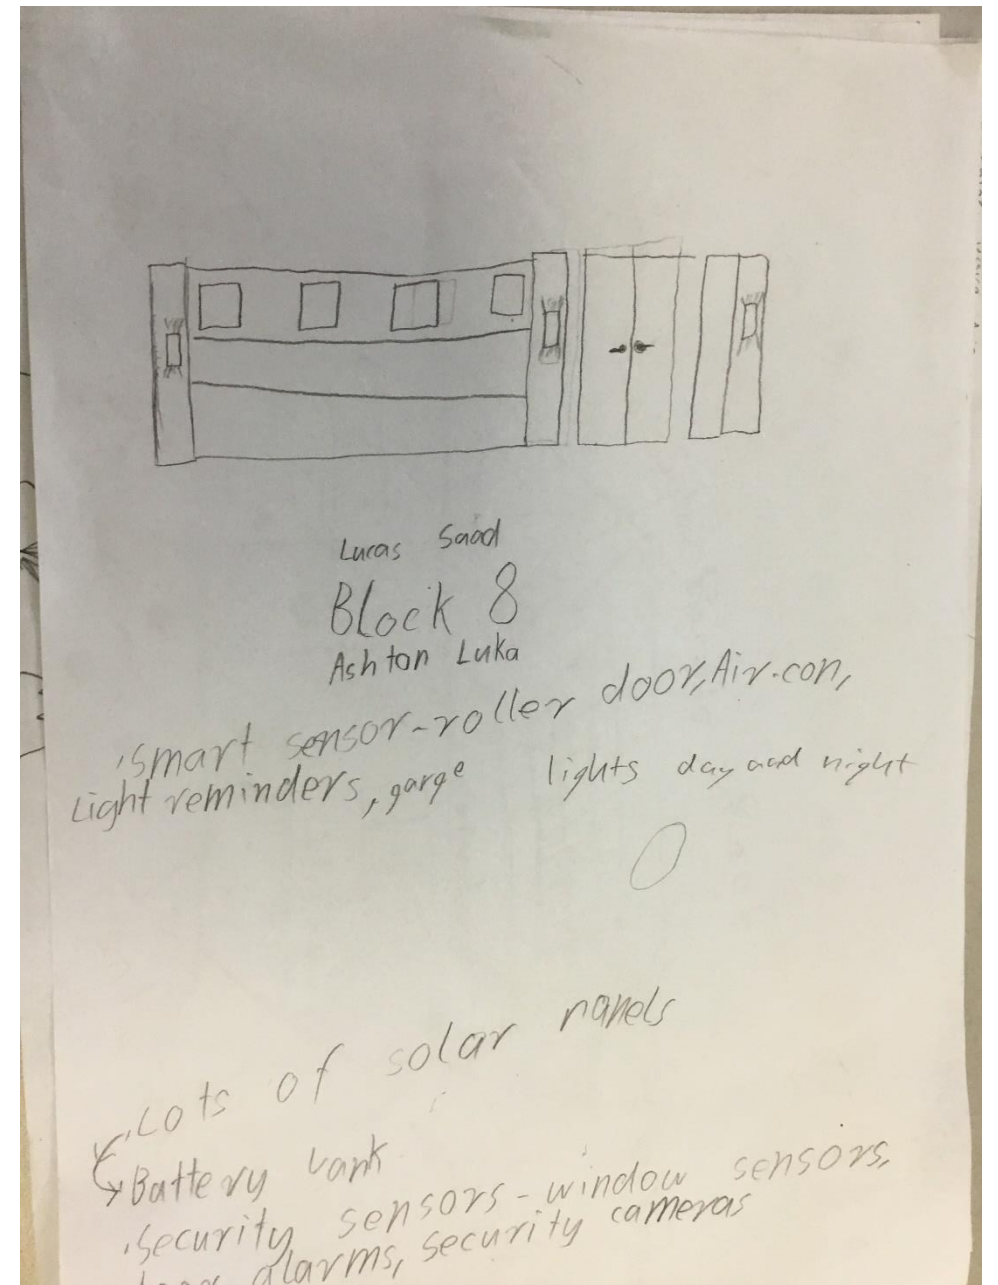 Lucas Saad
Block 8
Ashton Luka
·smart sensor-roller door, Air-con,
Light reminders, garge lights day and night
·Lots of solar panels
Battery bank
·Security sensors - window sensors,
alarms, security cameras